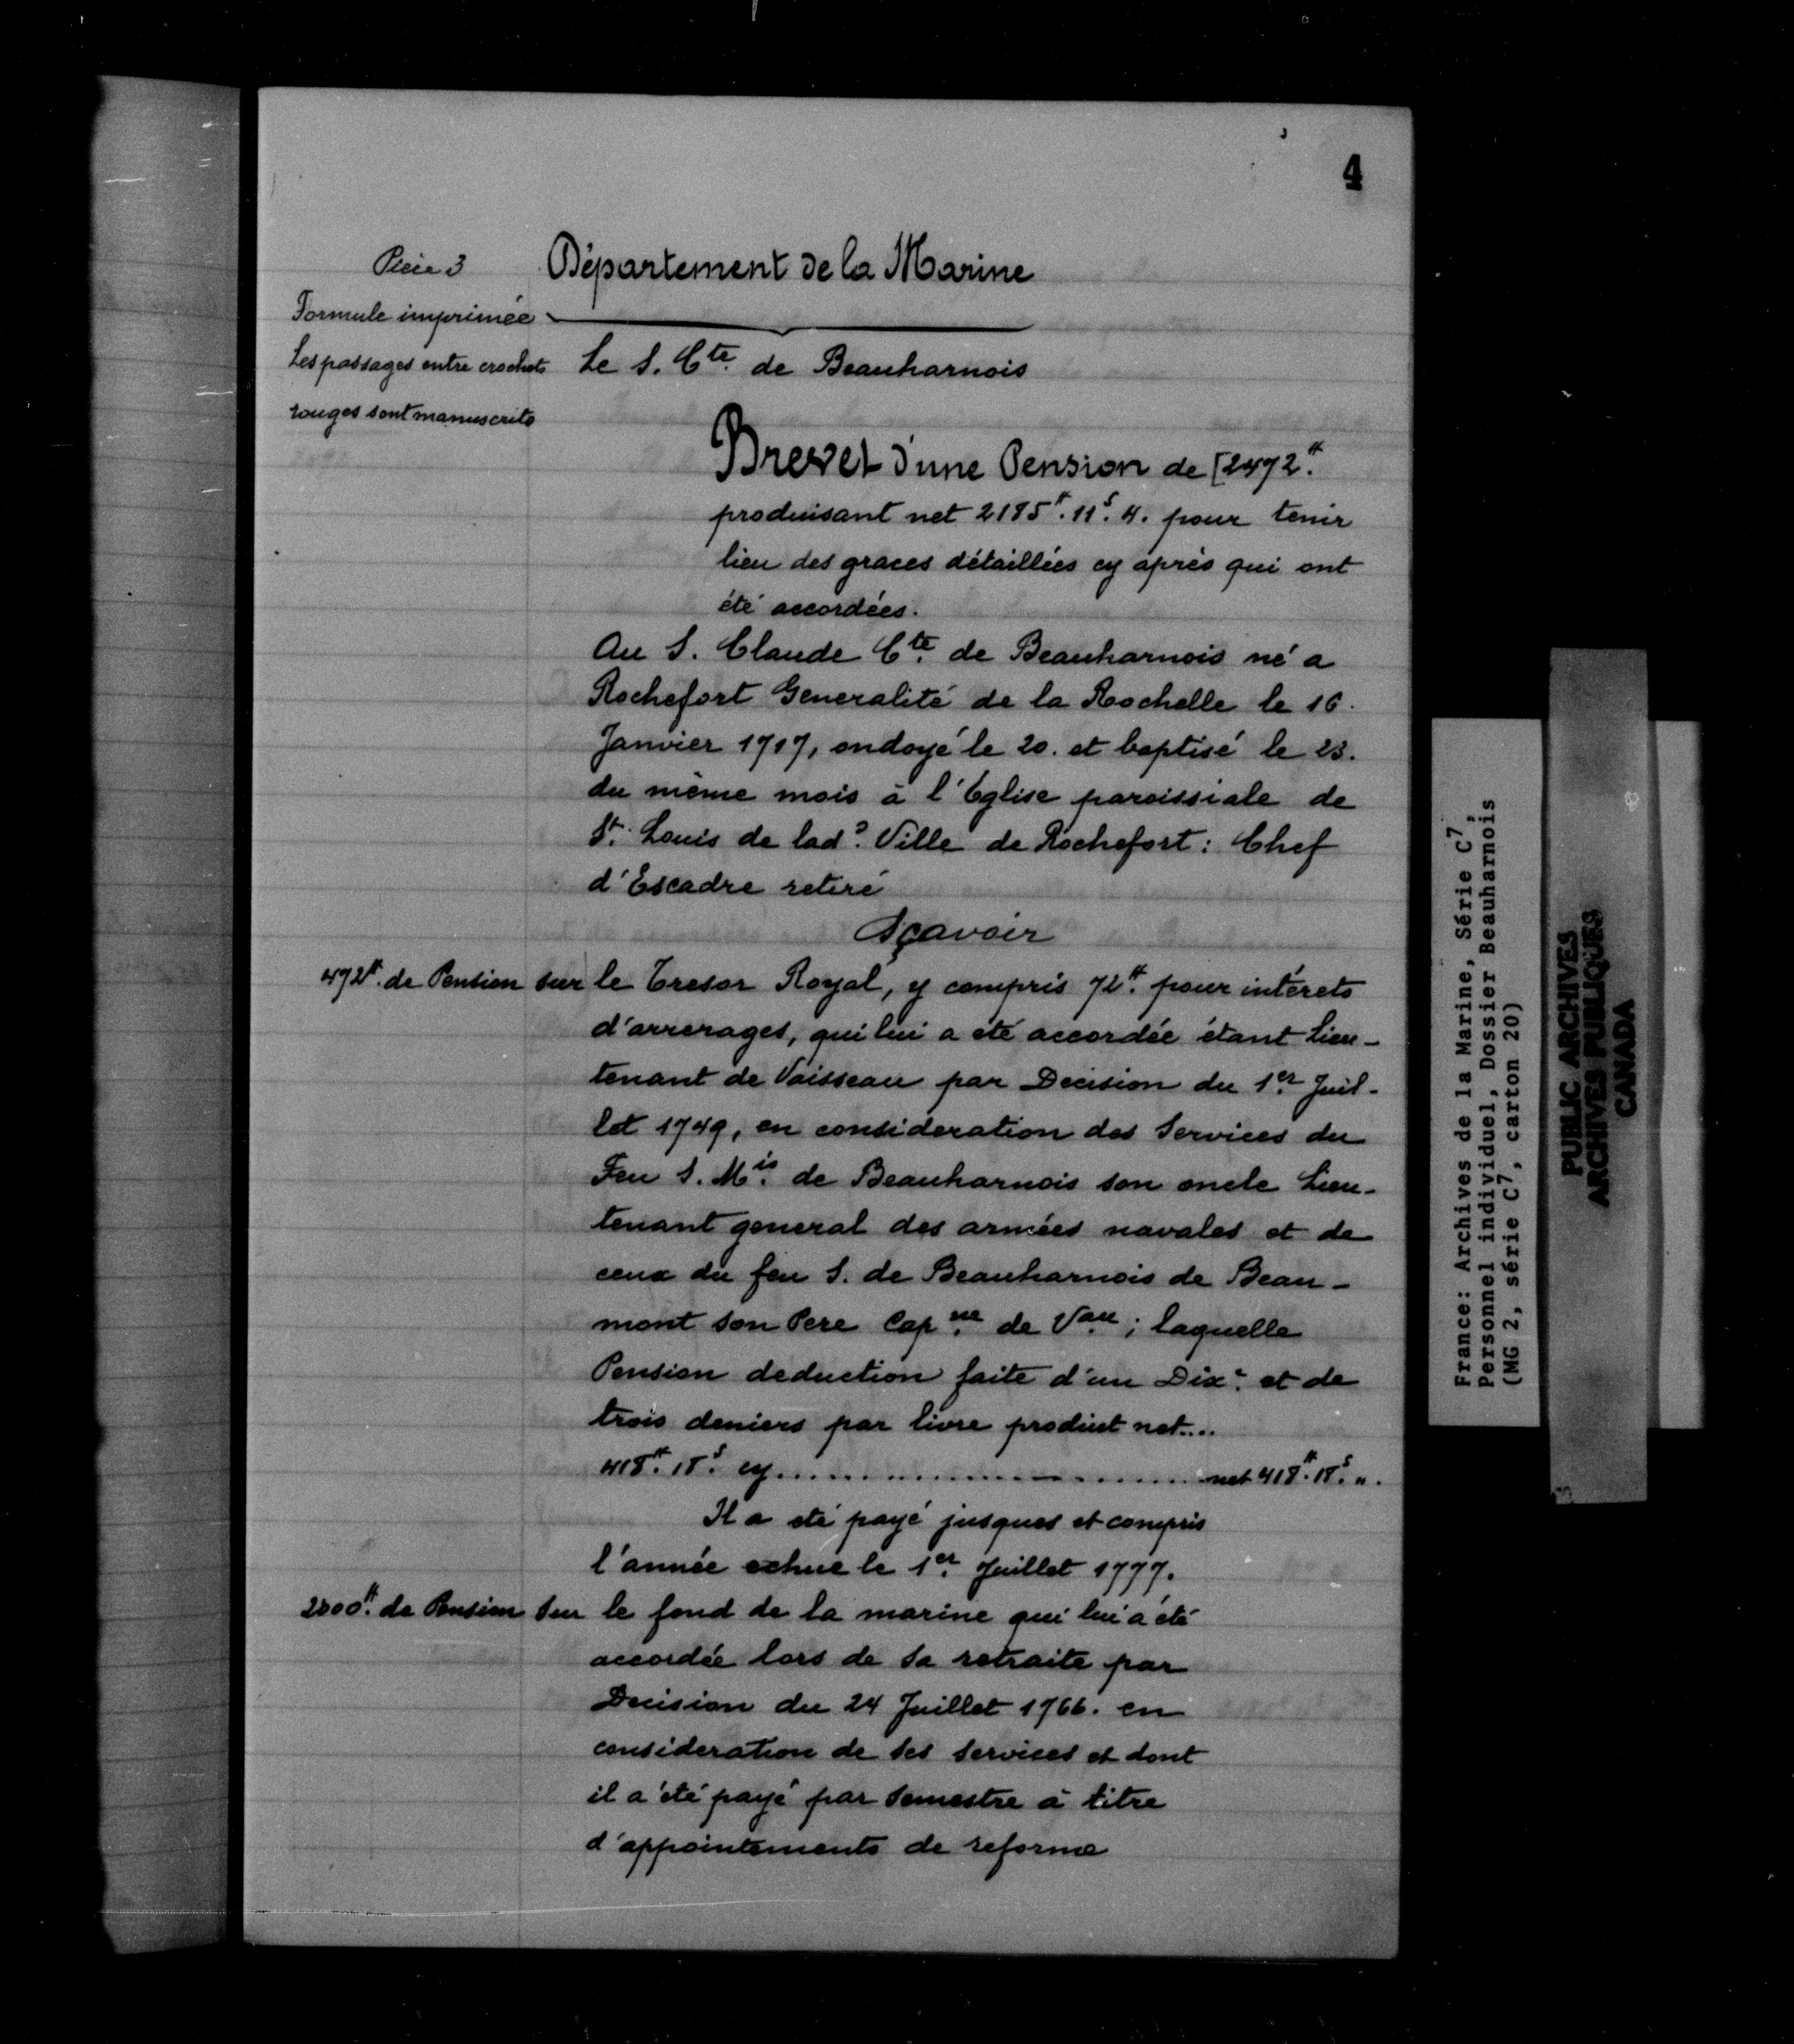 4
Pièce 3
Formule imprimée
Les passages entre crochets
rouges sont manuscrits
Département de la Marine
Le S. Cte. de Beauharnois
Brevet d'une Pension de [2472#.
produisant net 2185#. 11s. 4. pour tenir
lieu des graces détaillées cy après qui ont
été accordées.
Au S. Claude Cte. de Beauharnois né a
Rochefort Generalité de la Rochelle le 16.
Janvier 1717, ondoyé le 20. et baptisé le 23.
du même mois à l'Eglise paroissiale de
St. Louis de lad.e Ville de Rochefort : Chef
d'Escadre retiré
Sçavoir
472#. de Pension sur le Tresor Royal, y compris 72#. pour intérets
d'arrerages, qui lui a été accordée étant Lieu-
tenant de Vaisseau par Decision du 1er. Juil-
let 1749, en consideration des Services du
Feu S. Mis. de Beauharnois son oncle Lieu-
tenant general des armées navales et de
ceux du feu S. de Beauharnois de Beau-
mont son Pere Cap.ne de Vau. ; laquelle
Pension deduction faite d'un Dix.e et de
trois deniers par livre produit net...
418#. 18s. cy........................... net 418#. 18s. ".
Il a été payé jusques et compris
l'année echue le 1er. Juillet 1777.
2000#. de Pension Sur le fond de la marine qui lui a été
accordée lors de sa retraite par
Decision du 24 Juillet 1766. en
consideration de ses services et dont
il a été payé par Semestre à titre
d'appointements de reforme
France: Archives de la Marine, Série C7,
Personnel individuel, Dossier Beauharnois
(MG 2, série C7, carton 20)
PUBLIC ARCHIVES
ARCHIVES PUBLIQUES
CANADA